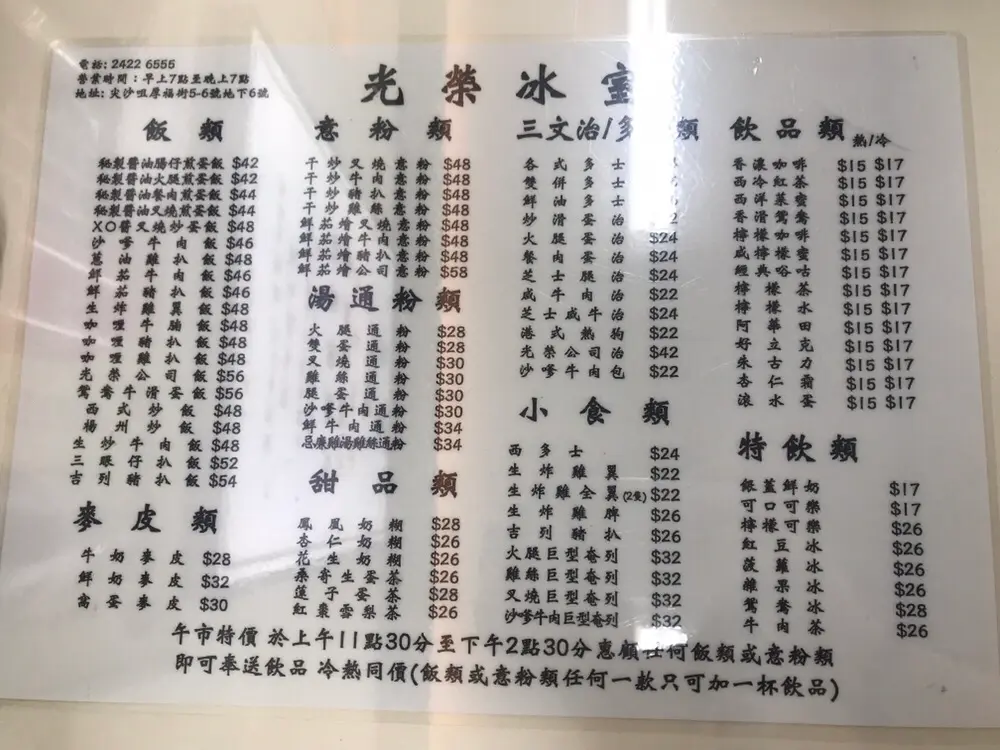 電話: 2422 6555
營業時間：早上7點至晚上7點
地址: 尖沙咀厚福街5-6號地下6號
光榮冰室
飯類
秘製醬油腸仔煎蛋飯 $42
秘製醬油火腿煎蛋飯 $42
秘製醬油餐肉煎蛋飯 $44
秘製醬油叉燒煎蛋飯 $44
XO醬叉燒炒蛋飯 $48
沙嗲牛肉飯 $46
蔥油雞扒飯 $48
鮮茄牛肉飯 $46
鮮茄豬扒飯 $46
生炸雞翼飯 $48
咖喱牛腩飯 $48
咖喱豬扒飯 $48
咖喱雞扒飯 $48
光榮公司飯 $56
鴛鴦牛滑蛋飯 $56
西式炒飯 $48
楊州炒飯 $48
生炒牛肉飯 $48
三眼仔扒飯 $52
吉列豬扒飯 $54
麥皮類
牛奶麥皮 $28
鮮奶麥皮 $32
窩蛋麥皮 $30
意粉類
干炒叉燒意粉 $48
干炒牛肉意粉 $48
干炒豬扒意粉 $48
干炒雞絲意粉 $48
鮮茄燴叉燒意粉 $48
鮮茄燴牛肉意粉 $48
鮮茄燴豬扒意粉 $48
鮮茄燴公司意粉 $58
湯通粉類
火腿通粉 $28
雙蛋通粉 $28
叉燒通粉 $30
雞絲通粉 $30
腿蛋通粉 $30
沙嗲牛肉通粉 $30
鮮牛肉通粉 $34
忌廉雞湯雞絲通粉 $34
甜品類
鳳凰奶糊 $28
杏仁奶糊 $26
花生奶糊 $26
桑寄生蛋茶 $26
蓮子蛋茶 $28
紅棗雪梨茶 $26
三文治/多類
各式多士
雙併多士
鮮油多士
炒滑蛋治
火腿蛋治 $24
餐肉蛋治 $24
芝士腿治 $24
咸牛肉治 $22
芝士咸牛治 $24
港式熱狗 $22
光榮公司治 $42
沙嗲牛肉包 $22
小食類
西多士 $24
生炸雞翼 $22
生炸雞全翼(2隻) $22
生炸雞髀 $26
吉列豬扒 $26
火腿巨型奄列 $32
雞絲巨型奄列 $32
叉燒巨型奄列 $32
沙嗲牛肉巨型奄列 $32
飲品類 熱/冷
香滾咖啡 $15 $17
西冷紅茶 $15 $17
西洋菜蜜 $15 $17
香滑鴛鴦 $15 $17
檸檬咖啡 $15 $17
咸檸檬蜜 $15 $17
經典唂咕 $15 $17
檸檬茶 $15 $17
檸檬水 $15 $17
阿華田 $15 $17
好立克 $15 $17
朱古力 $15 $17
杏仁霜 $15 $17
滾水蛋 $15 $17
特飲類
銀蓋鮮奶 $17
可口可樂 $17
檸檬可樂 $26
紅豆冰 $26
菠蘿冰 $26
雜果冰 $26
鴛鴦冰 $28
牛肉茶 $26
午市特價 於上午11點30分至下午2點30分惠顧任何飯類或意粉類
即可奉送飲品 冷熱同價(飯類或意粉類任何一款只可加一杯飲品)